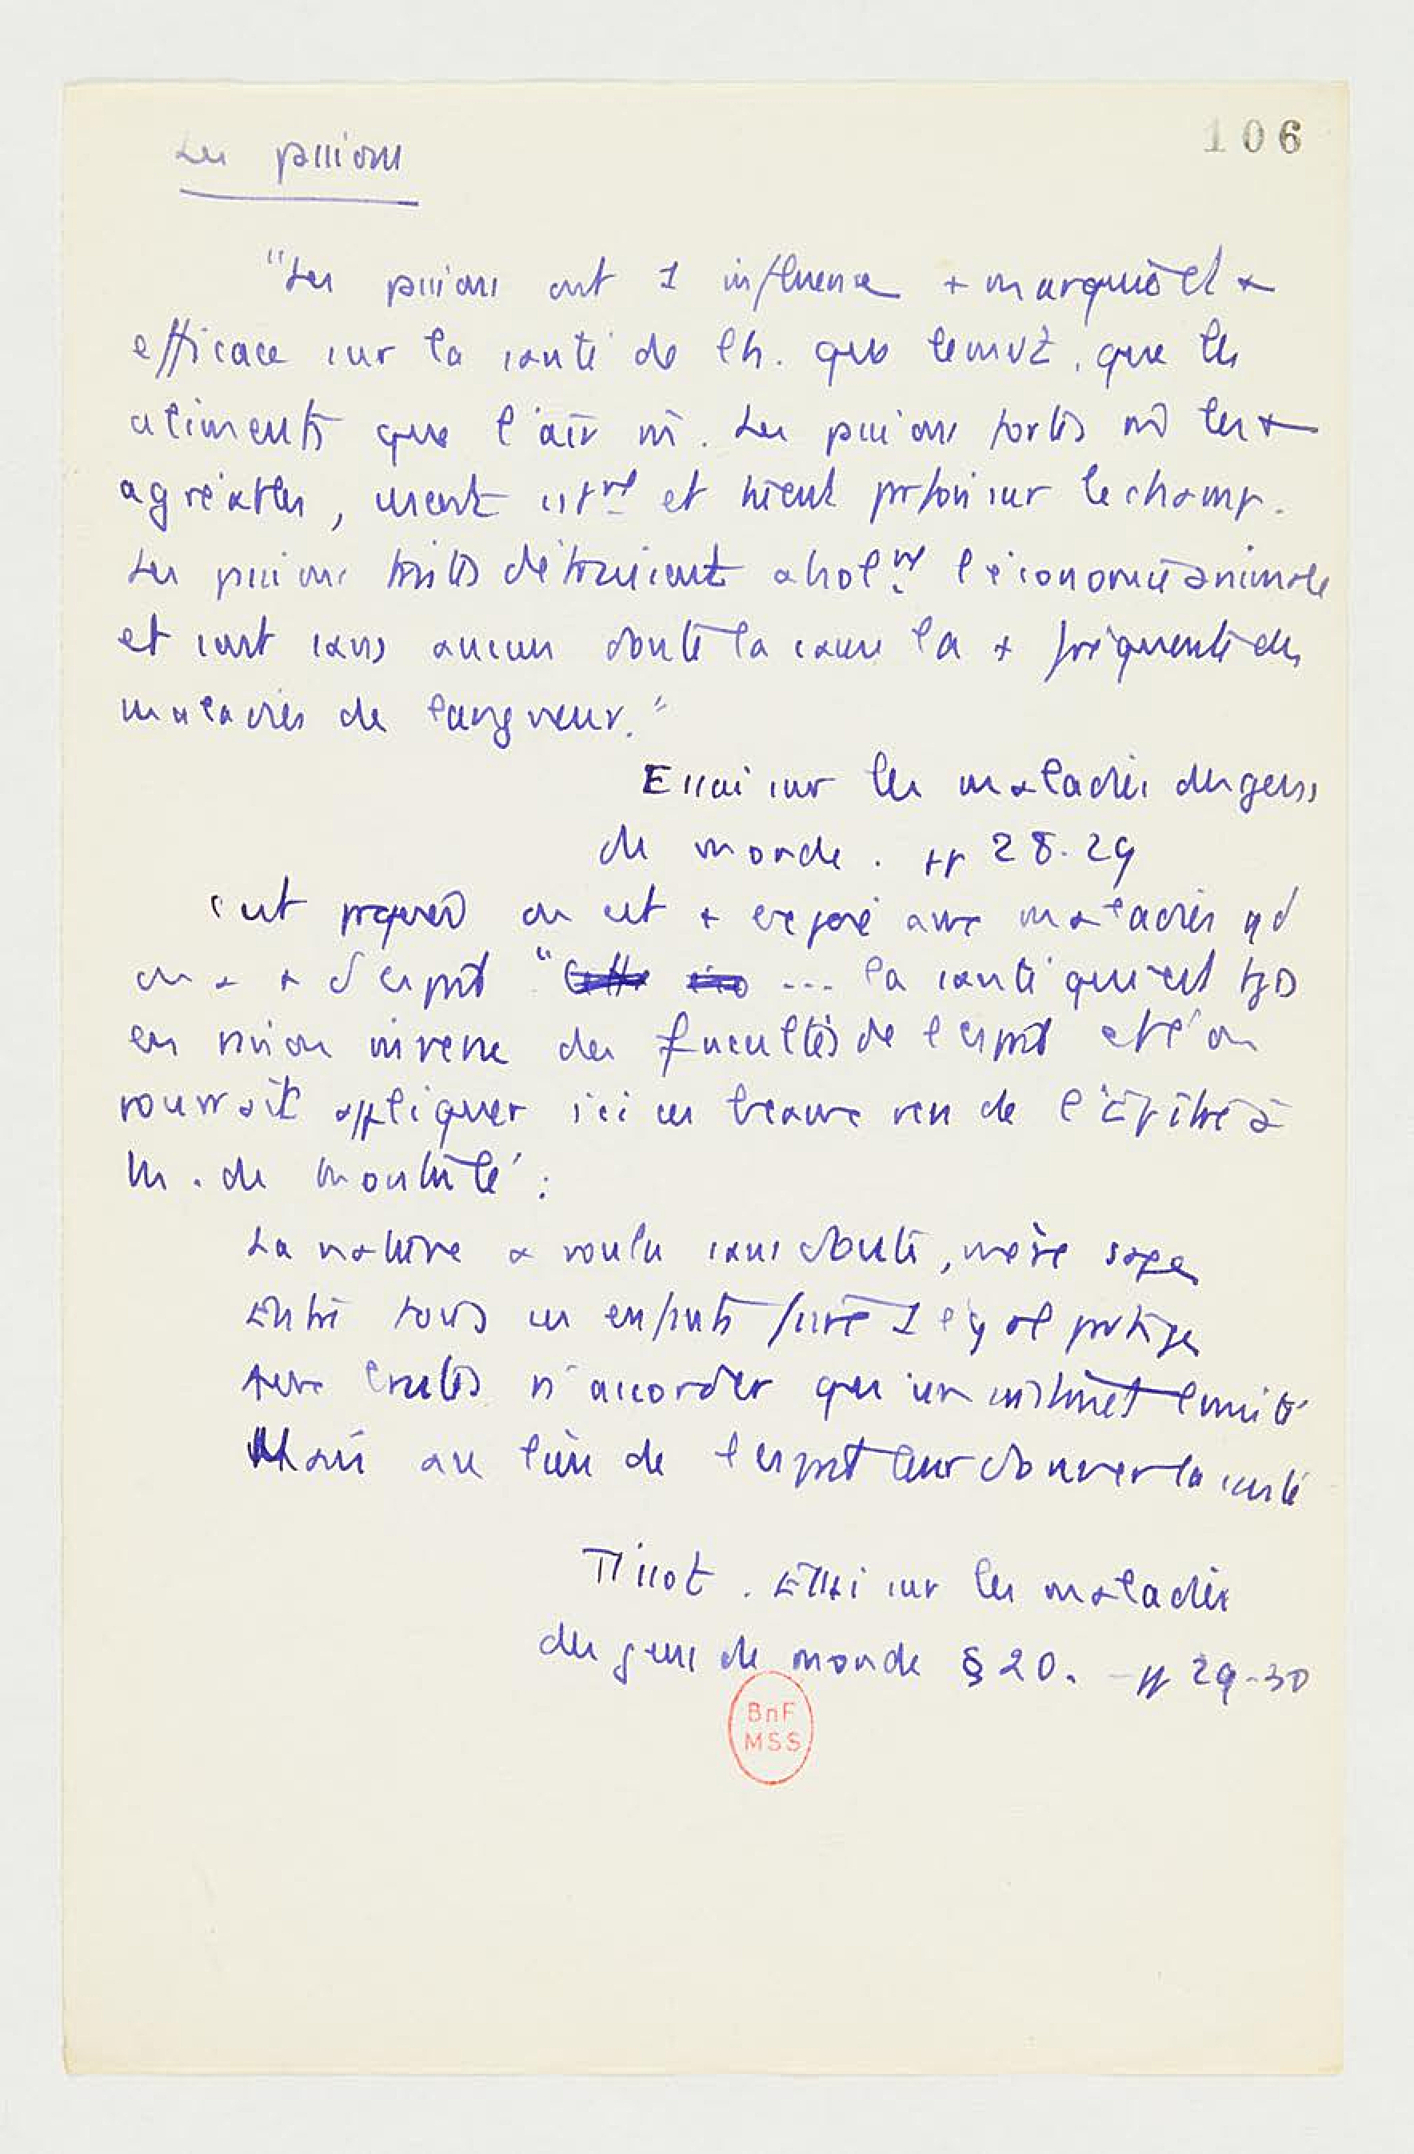 106
Les passions
"Les passions ont 1 influence + marquée et +
efficace sur la santé de l'h. que le mvt, que les
aliments que l'air m. Les passions fortes m les +
agréables, usent et tuent parfois sur le champ.
Les passions tristes détruisent absolnt l'économie animale
et sont sans aucun doute la cause la + fréquente des
maladies de langueur."
Essai sur les maladies des gens
du monde. pp 28-29
C'est pourquoi on est + exposé aux maladies qd
on a + d'esprit "... la santé qui est tjs
en raison inverse des facultés de l'esprit et l'on
pourrait appliquer ici ces beaux vers de l'Épître à
M. de :
La nature a voulu sans doute, mère sage
Entre tous ses enfants faire 1 égal partage
Aux brutes n'accorder qu'un instinct limité
Mais au lieu de l'esprit leur donner la santé
Tissot. Essai sur les maladies
des gens du monde § 20. pp 29-30
BnF
MSS